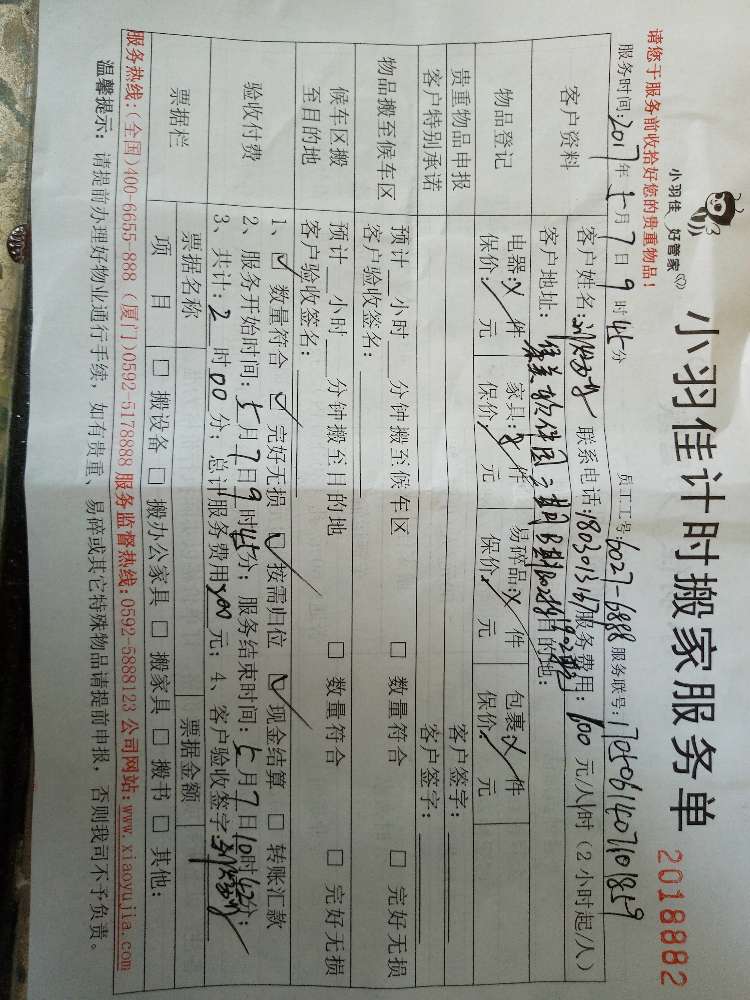 小羽佳计时搬家服务单
小羽佳 好管家
2018882
请您于服务前收拾好您的贵重物品！
员工工号：6027-6888 服务联号：170506140710 1859
服务时间：2017年5月7日9时45分
客户资料
客户姓名： 联系电话：180301367 服务费用：100元/小时（2小时起/人）
客户地址：集美软件园三期 目的地：
物品登记
电器：件 家具：件 易碎品：件 包裹：件
保价：元 保价：元 保价：元 保价：元
贵重物品申报 客户签字：
客户特别承诺 客户签字：
物品搬至候车区
预计 小时 分钟搬至候车区 □ 数量符合 □ 完好无损
客户验收签名：
候车区搬
至目的地
预计 小时 分钟搬至目的地 □ 数量符合 □ 完好无损
客户验收签名：
验收付费
1、☑ 数量符合 ☑ 完好无损 ☑ 按需归位 ☑ 现金结算 □ 转账汇款
2、服务开始时间：5月7日9时45分；服务结束时间：5月7日10时42分；
3、共计：2时00分；总计服务费用200元；4、客户验收签字：
票据栏
票据名称 票据金额
项 目 □ 搬设备 □ 搬办公家具 □ 搬家具 □ 搬书 □ 其他：
服务热线：(全国)400-6655-888 (厦门)0592-5178888 服务监督热线：0592-5888123 公司网站：www.xiaoyujia.com
温馨提示：请提前办理好物业通行手续，如有贵重、易碎或其它特殊物品请提前申报，否则我司不予负责。